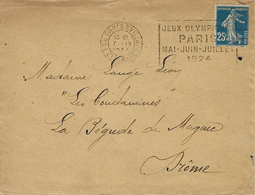 JEUX OLYMPI
PARIS
MAI-JUIN-JUILLET
1924
25
Madame Lange Léon
"Les Condamines"
La Bégude de Mazenc
Drôme